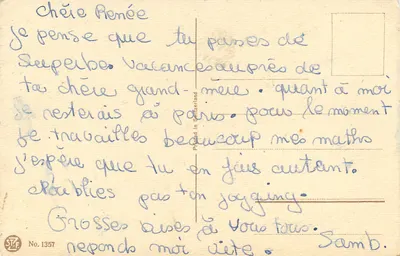 chère Renée
je pense que tu passes de
superbe. vacances auprès de
ta chère grand-mère. quant à moi
je resterais à paris. pour le moment
je travailles beaucoup mes maths
j'espère que tu en fais autant.
N'oublies pas ton jogging.
Grosses bises à vous tous.
reponds moi vite. Samb.
No. 1357